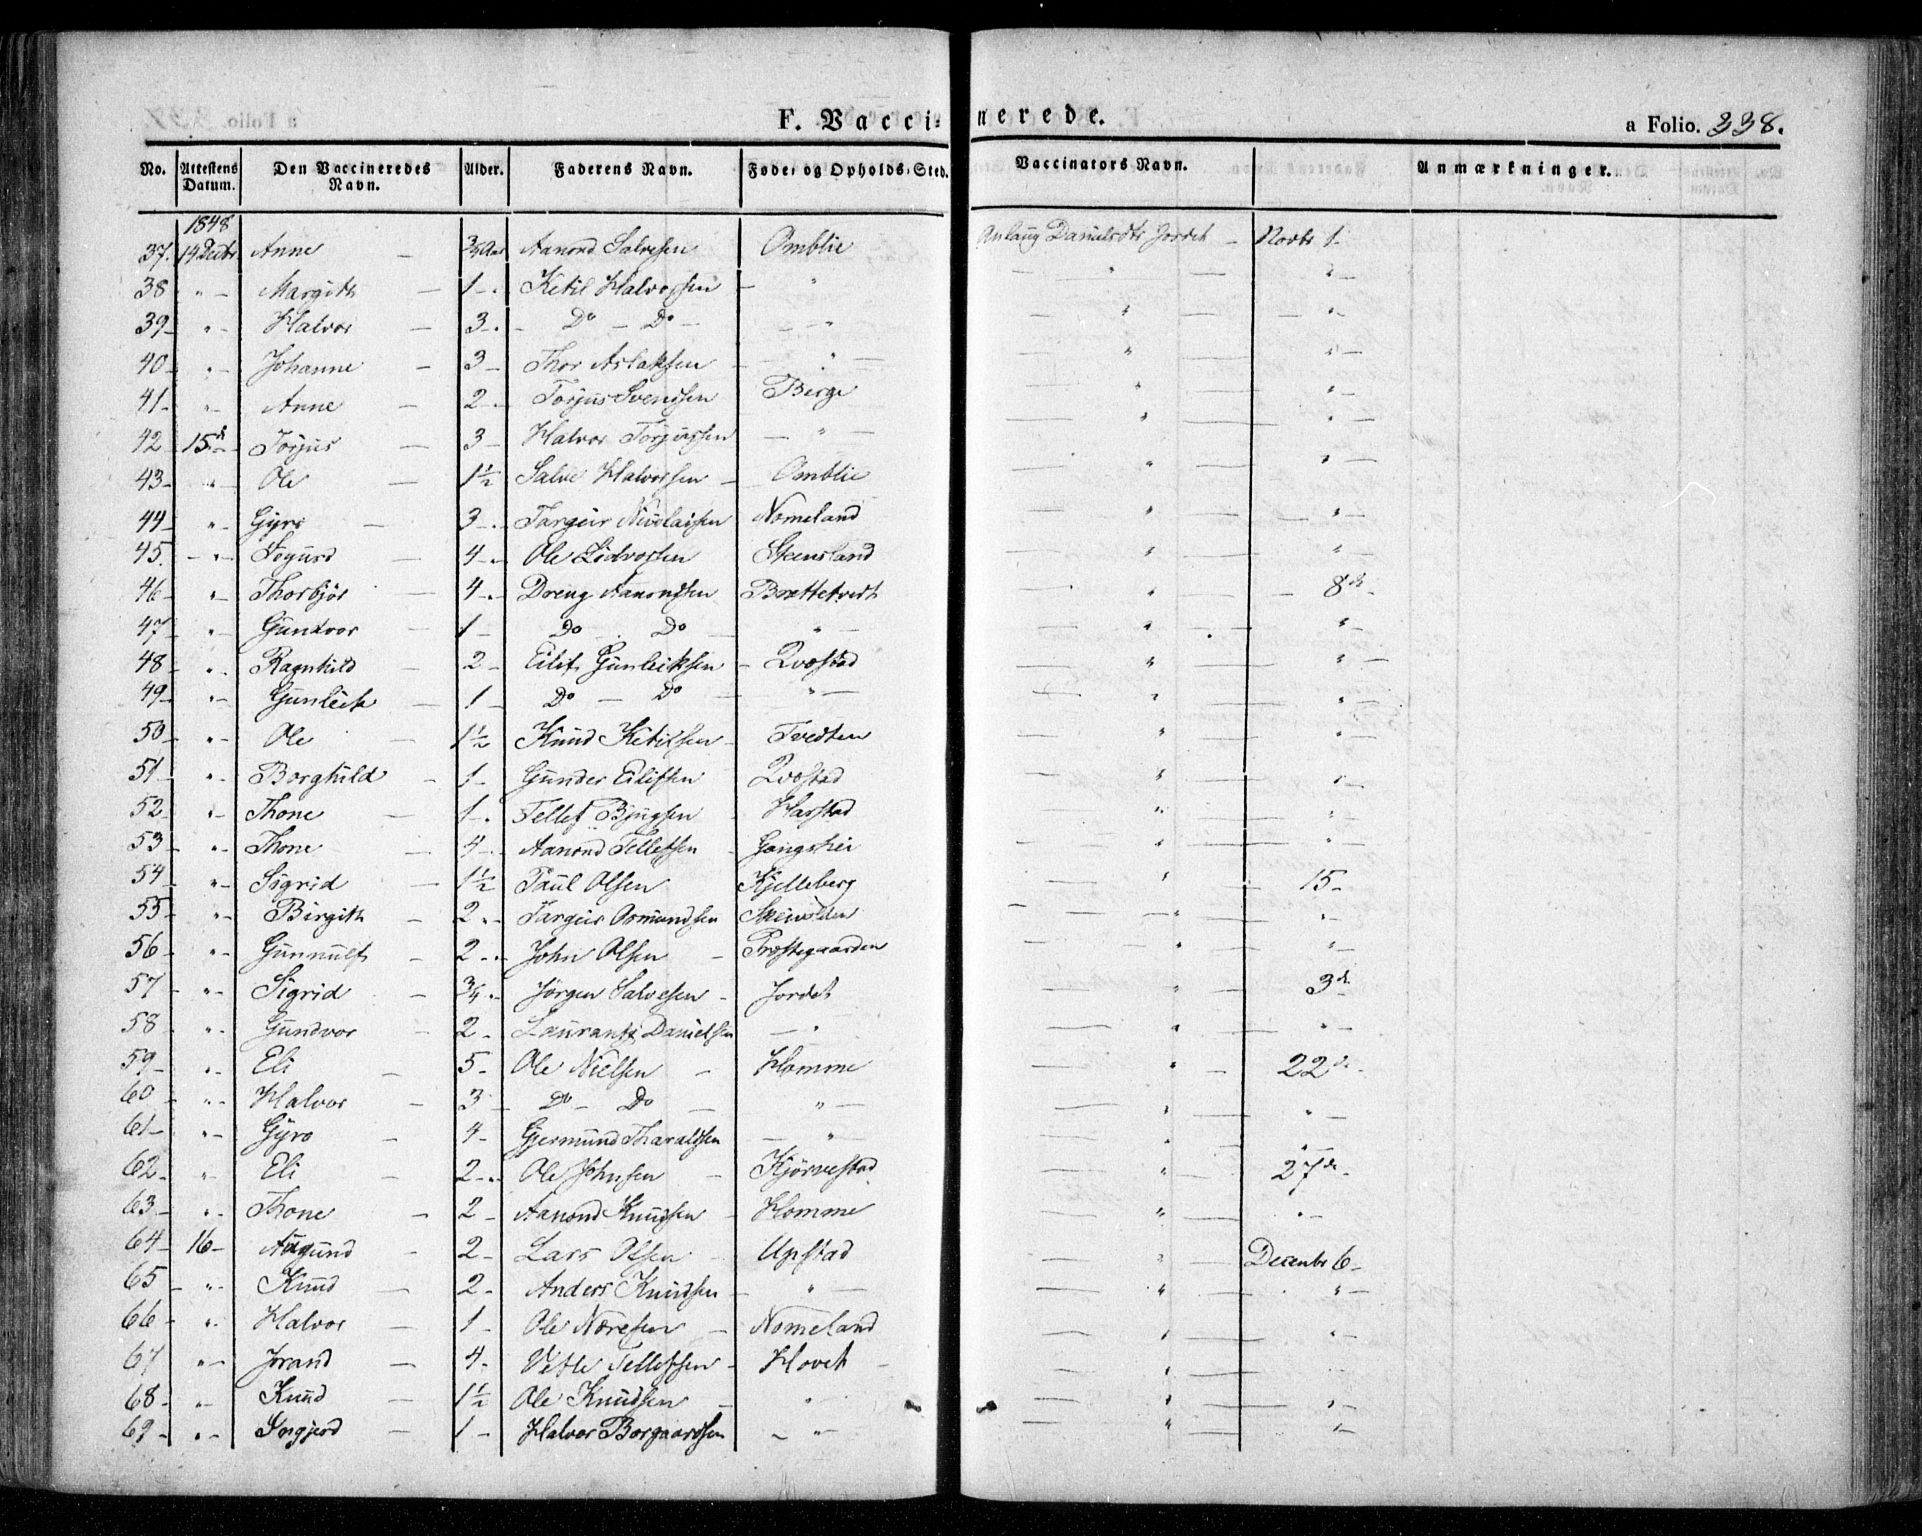 F. Vaccinerede.
a Folio. 338.
No. Attestens Datum. Den Vaccineredes Navn. Alder. Faderens Navn. Føde- og Opholds-Sted. Vaccinators Navn. Anmærkninger.
1848
37. 14 Decbr Anne — Aanond Salvesen Omblie Danielsdtr Jordet — Novbr 1-
38 " — Margith — 1 — Ketil Halvorsen — " — " — " —
39 — " — Halvor — 3 — Do — Do — — " — " — " —
40 — " — Johanne — 3 — Thor Aslaksen — " — " — " —
41 — " — Anne — 2 — Torjus Svendsen Berge — " — " —
42 15 d — Torjus — 3 — Halvor Torjussen — " — " — " —
43 — " — Ole — 1½ Salve Halvorsen — Omblie — " — " —
44 — " — Gyro — 3 — Targeir Nicolaisen Nomeland — " — " —
45. — " — Sogurd — 4 — Ole Steensland — " — " —
46 — " — Thorbjør — 4 — Dreng Aanonsen Brottetvedt — " — 8 de
47 — " — Gundvor — 1 — Do Do — " — " — " —
48 — " — Ragnhild — 2 — Eilif Gunleiksen — Qvæstad — " — " —
49 — " — Gunleik — 1 — Do — Do — " — " — " —
50 — " — Ole — 1½ Knud Ketilsen — Tvedten — " — " —
51 — " — Borghild — 1 — Gunder Eilifsen Qvæstad — " — " —
52 — " — Thone — 1 — Tellef Bjugsen Harstad — " — " —
53 — " — Thone — 4 — Aanond Tellefsen — Gangshei — " — " —
54 — " — Sigrid — 1½ Paul Olsen Kjelleberg — " — 15 —
55 — " — Birgith — 2 — Targeir Osmundsen Skeivolden — " — " —
56 — " — Gunnulf — 2 — John Olsen — Præstegaarden — " — " —
57 — " — Sigrid — ¾ — Jörgen Salvesen — Jordet — " — 3 de
58 — " — Gundvor — 2 — Laurants Danielsen — " — " — " —
59 — " — Eli — 5 — Ole Nielsen — Homme — " — 22 de
60 — " — Halvor — 3 — Do — Do — " — " — " —
61 — " — Gyro — 4 — Gjermund Tharaldsen — " — " — " —
62 — " — Eli — 2 — Ole Johnsen — Kjörvestad — " — 27 de
63 — " — Thone — 2 — Aanond Knudsen — Homme — " — " —
64 — 16 — Augund — 2 — Lars Olsen — Upstad — " — Decembr 6 —
65 — " — Knud — 2 — Anders Knudsen — " — " — " —
66 — " — Halvor — 1 — Ole Noresen — Nomeland — " — " —
67 — " — Jorand — 4 — Vetle Tellefsen — Hovet — " — " —
68 — " — Knud — 1½ Ole Knudsen — " — " — " —
69 — " — Ingjerd — 1 — Halvor Borgaardsen — " — " — " —